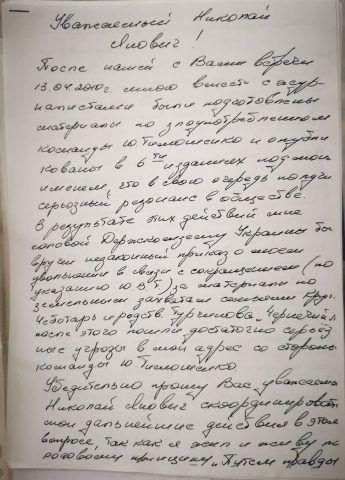 Уважаемый Николай
Янович!
После нашей с Вами встречи
13.04.2010г. мною вместе с жур-
налистами были подготовлены
материалы по злоупотреблениям
команды Ю Тимошенко и опубли
кованы в 6ти изданиях под моим
именем, что в свою очередь получи
серьёзный резонанс в обществе.
В результате этих действий мне
Украины бы
вручен незаконный приказ о моем
увольнении в связи с сокращением (по
указанию Ю.В.Т) за материалы по
земельным захватам семьями
и родств. Турчинова
после этого пошли достаточно серьёз
ные угрозы в мой адрес со стороны
команды Ю Тимошенко.
Убедительно прошу Вас, уважаемы
Николай Янович скоординировать
мои дальнейшие действия в этом
вопросе, так как я жил и живу по
принципу „Путем правды